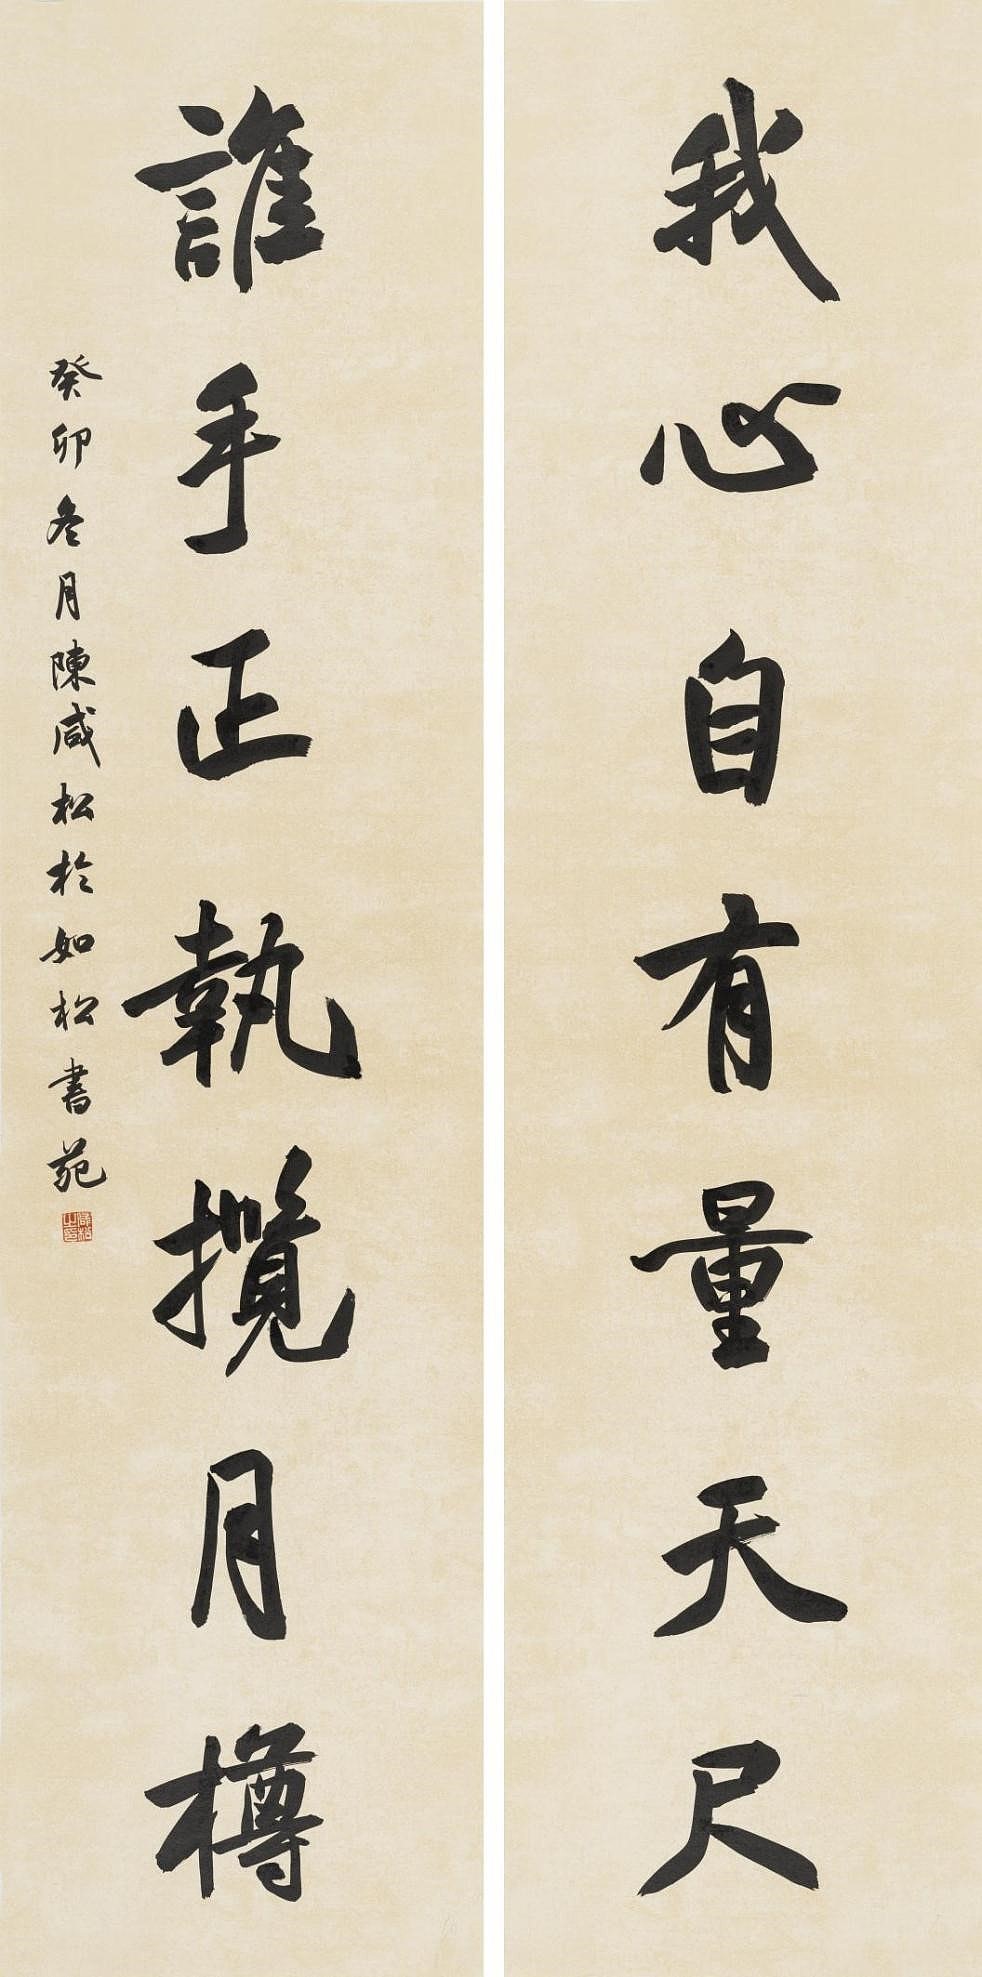 我心自有量天尺
誰手正執攬月樽
癸卯冬月陳咸松於如松書苑